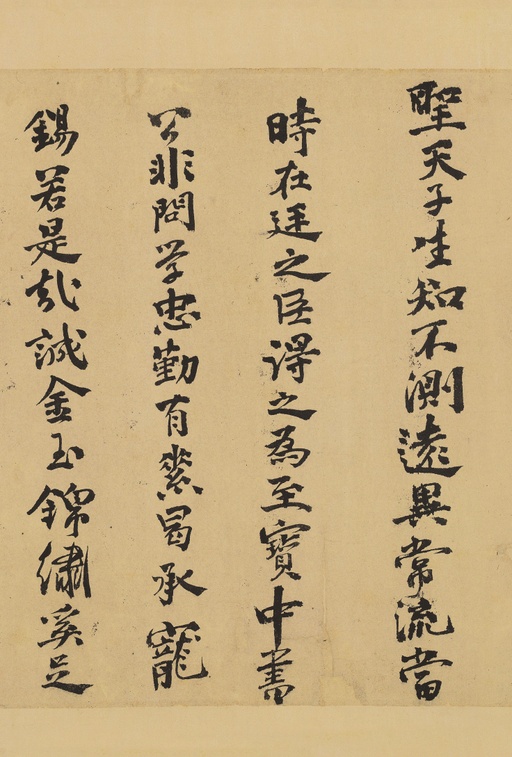 聖天子生知不測遠異常流當
時在廷之臣得之為至寶中書
公非問学忠勤有素曷承寵
錫若是哉誠金玉錦繡奚足